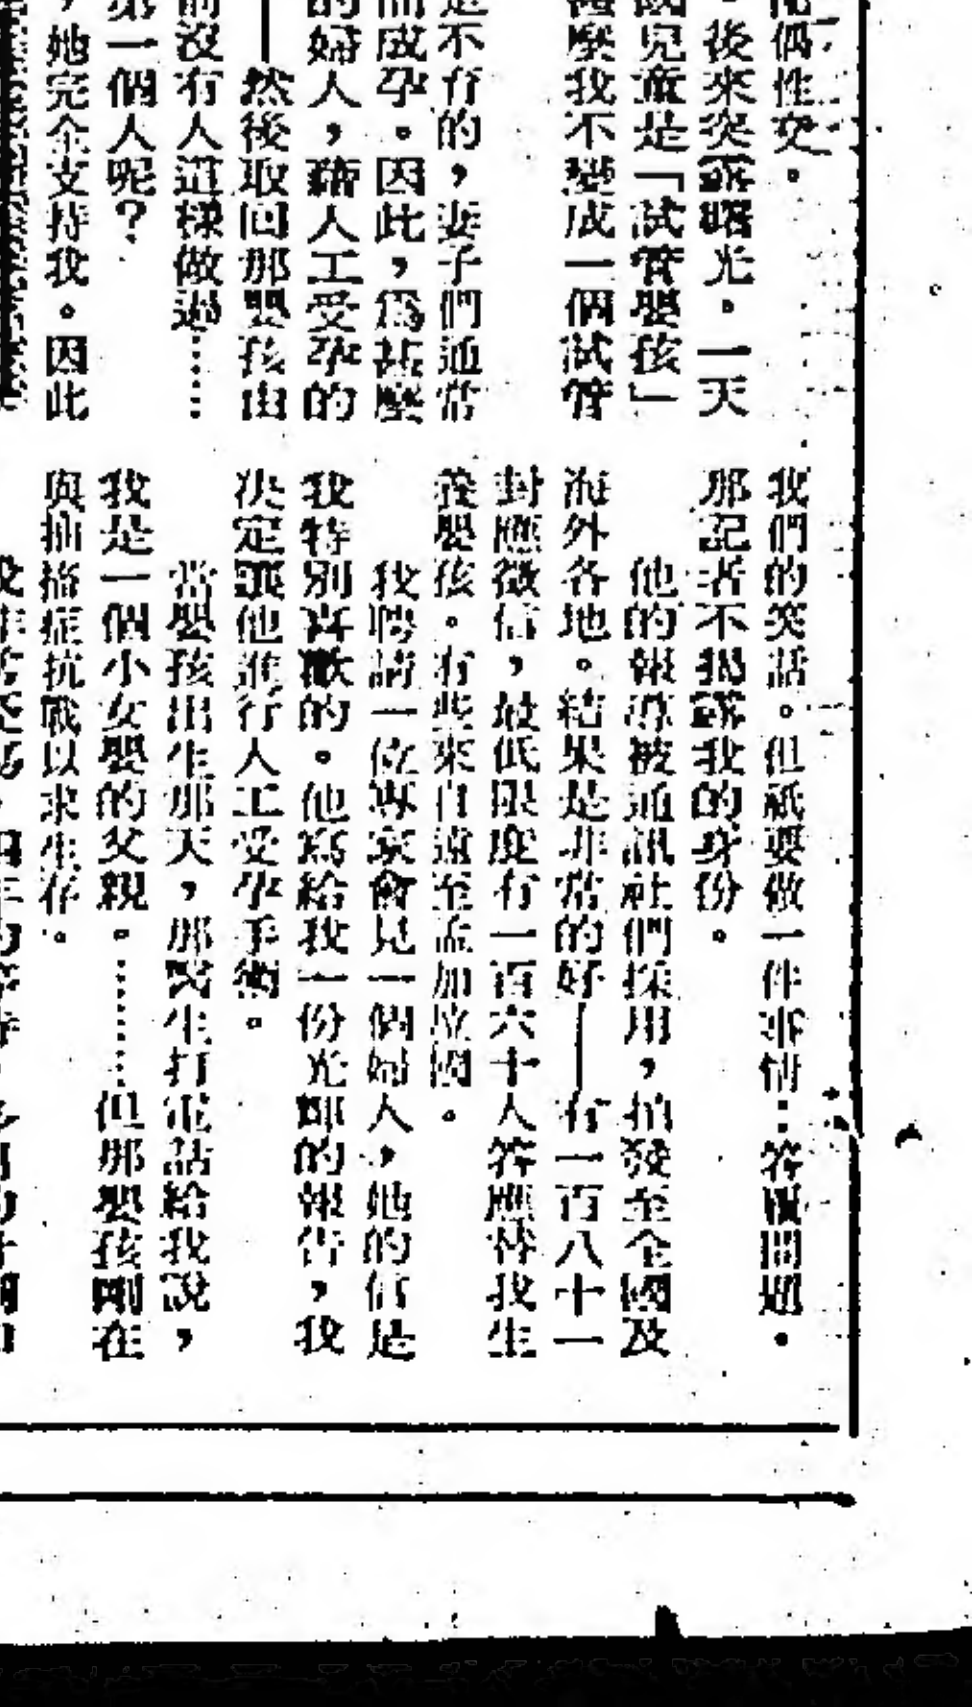 配偶性交。
。後來突露曙光。一天
試兒童是「試管嬰孩」
甚麼我不變成一個試管
是不育的,妻子們通常
而成孕。因此,爲甚麼
的婦人,藉人工受孕的
——然後取回那嬰孩由
前沒有人這樣做過……
第一個人呢?
,她完全支持我。因此
我們的笑話。但祗要做一件事情:答覆問題。
那記者不揭露我的身份。
他的報導被通訊社們採用,拍發至全國及
海外各地。結果是非常的好——有一百八十一
封應徵信,最低限度有一百六十人答應替我生
養嬰孩。有些來自遠至孟加拉國。
我聘請一位專家會見一個婦人,她的信是
我特別喜歡的。他寫給我一份光輝的報告,我
决定讓他進行人工受孕手術。
當嬰孩出生那天,那醫生打電話給我說,
我是一個小女嬰的父親。……但那嬰孩剛在
與抽搐症抗戰以求生存。